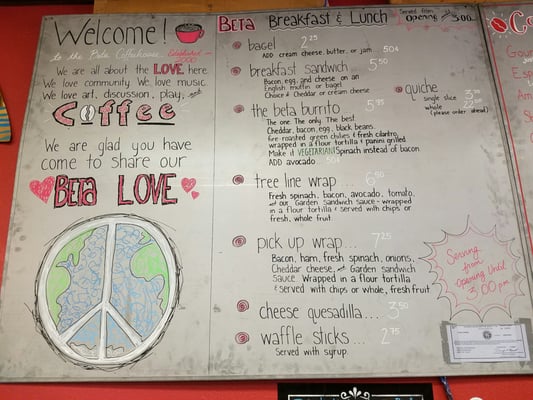 Welcome!
to the Beta Coffeehouse. Established
We are all about the LOVE here
We love community We love music
We love art, discussion, play, and
Coffee
We are glad you have
come to share our
BETA LOVE
BETA Breakfast & Lunch
Served from
opening 3:00
bagel 2.25
ADD cream cheese, butter, or jam 50¢
breakfast sandwich 5.50
Bacon, egg, and cheese on an
English muffin or bagel
Choice of Cheddar or cream cheese
quiche
single slice
whole
(please order ahead)
the beta burrito
The one. The only. The best.
Cheddar, bacon, egg, black beans,
fire-roasted green chilies & fresh cilantro
wrapped in a flour tortilla & panini grilled
Make it VEGETARIAN! Spinach instead of bacon
ADD avocado
tree line wrap... 6.50
Fresh spinach, bacon, avocado, tomato,
and our Garden Sandwich sauce - wrapped
in a flour tortilla & served with chips or
fresh, whole fruit
pick up wrap... 7.25
Bacon, ham, fresh spinach, onions,
Cheddar cheese, and Garden Sandwich
sauce Wrapped in a flour tortilla
& Served with chips or whole, fresh fruit
cheese quesadilla.... 3.50
waffle sticks... 2.75
Served with syrup
Serving
from
Opening Until
3:00 pm